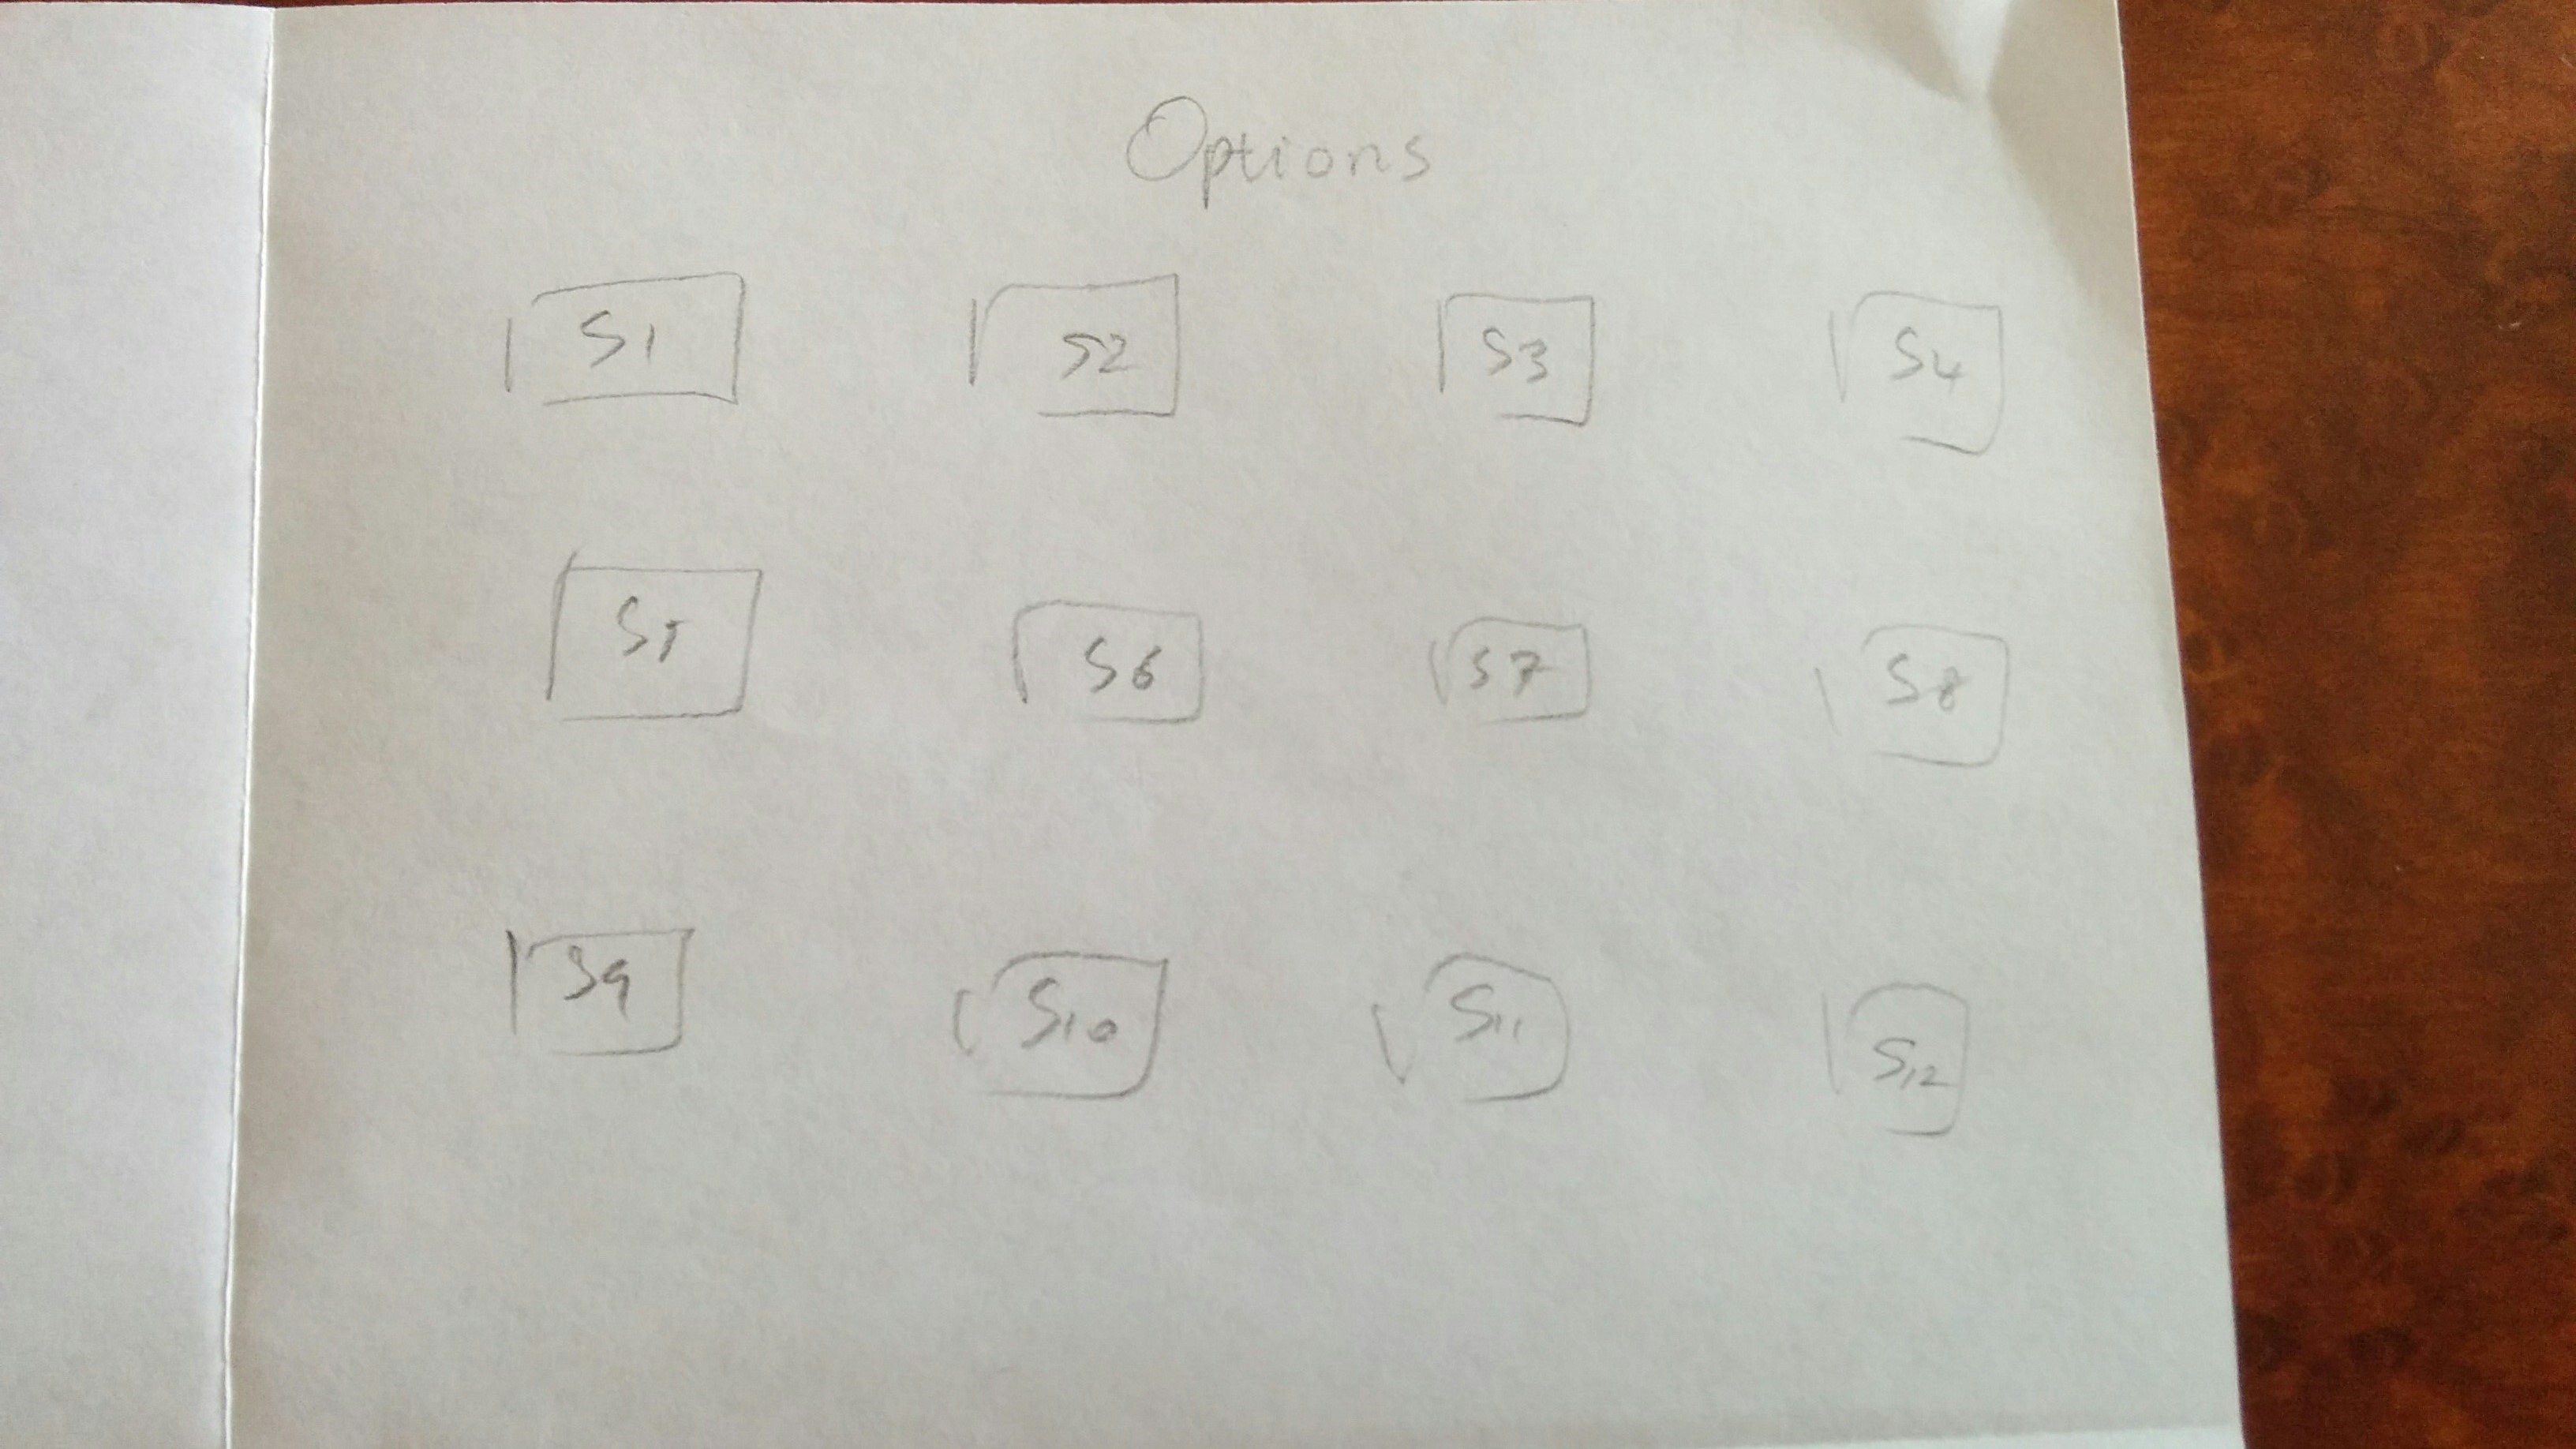 Options
S1 S2 S3 S4
S5 S6 S7 S8
S9 S10 S11 S12